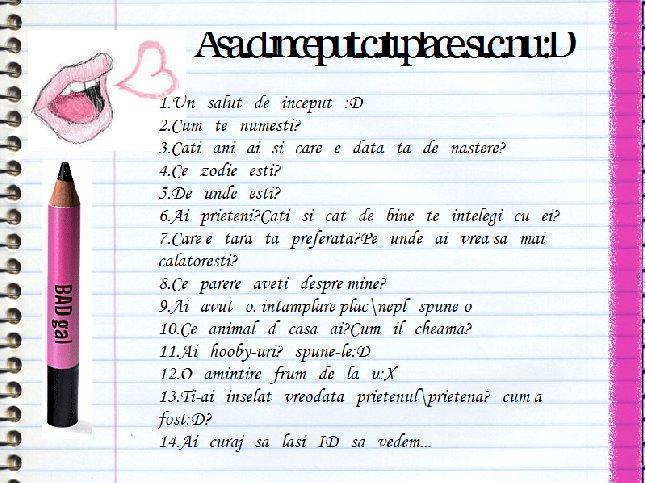 Asa.d.inceput.c.iti.place.si.c.nu:D
1.Un salut de inceput :D
2.Cum te numesti?
3.Cati ani ai si care e data ta de nastere?
4.Ce zodie esti?
5.De unde esti?
6.Ai prieteni?Cati si cat de bine te intelegi cu ei?
7.Care e tara ta preferata?Pe unde ai vrea sa mai
calatoresti?
8.Ce parere aveti despre mine?
9.Ai avut o. intamplare plac\nepl spune o
10.Ce animal d casa ai?Cum il cheama?
11.Ai hooby-uri? spune-le:D
12.O amintire frum de la u:X
13.Ti-ai inselat vreodata prietenul\prietena? cum a
fost:D?
14.Ai curaj sa lasi ID sa vedem...
BAD gal